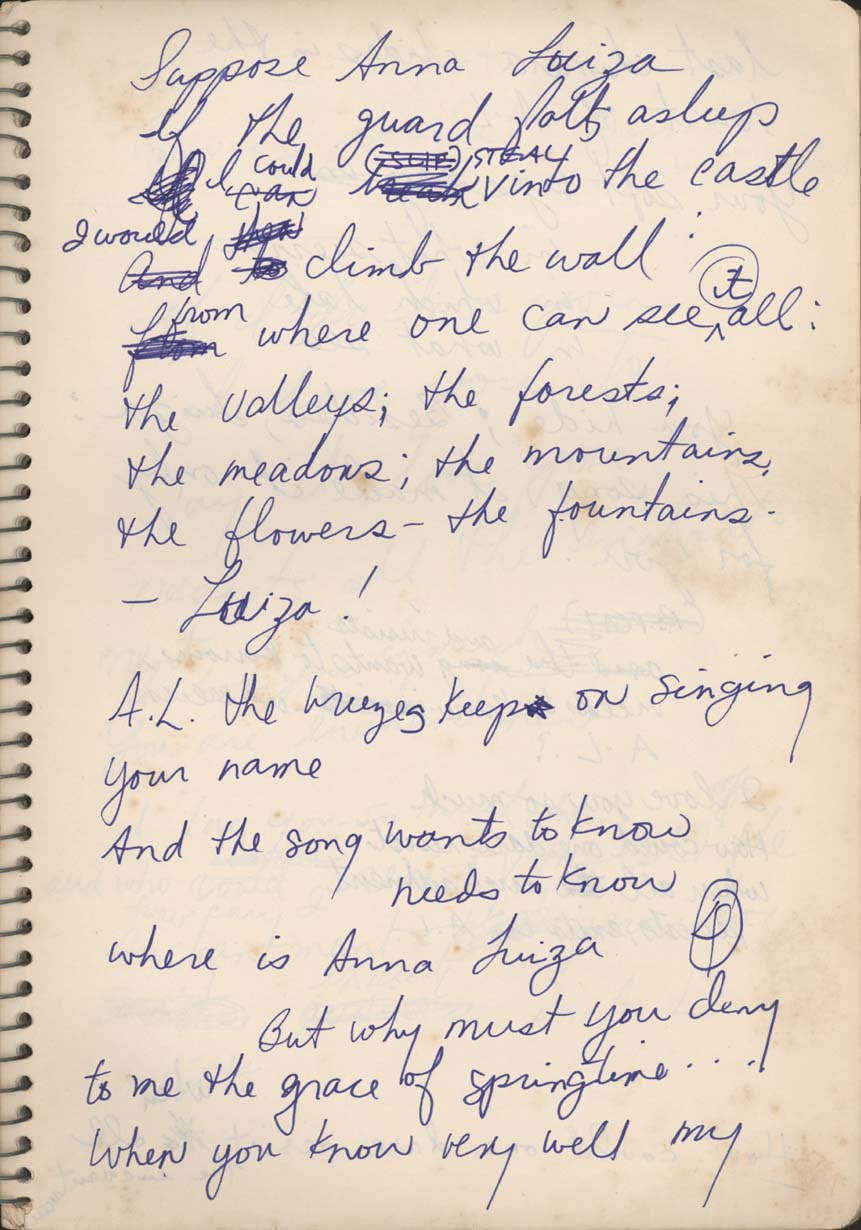 Suppose Anna Luiza
If the guard falls asleep
I could can (SLIP) STEAL into the castle
I would then
And to climb the wall
from from where one can see it all:
the valleys; the forests;
the meadows; the mountains,
the flowers – the fountains –
– Luiza!
A.L. the breezes keep on singing
your name
And the song wants to know
needs to know
where is Anna Luiza
But why must you deny
to me the grace of springtime....
When you know very well my